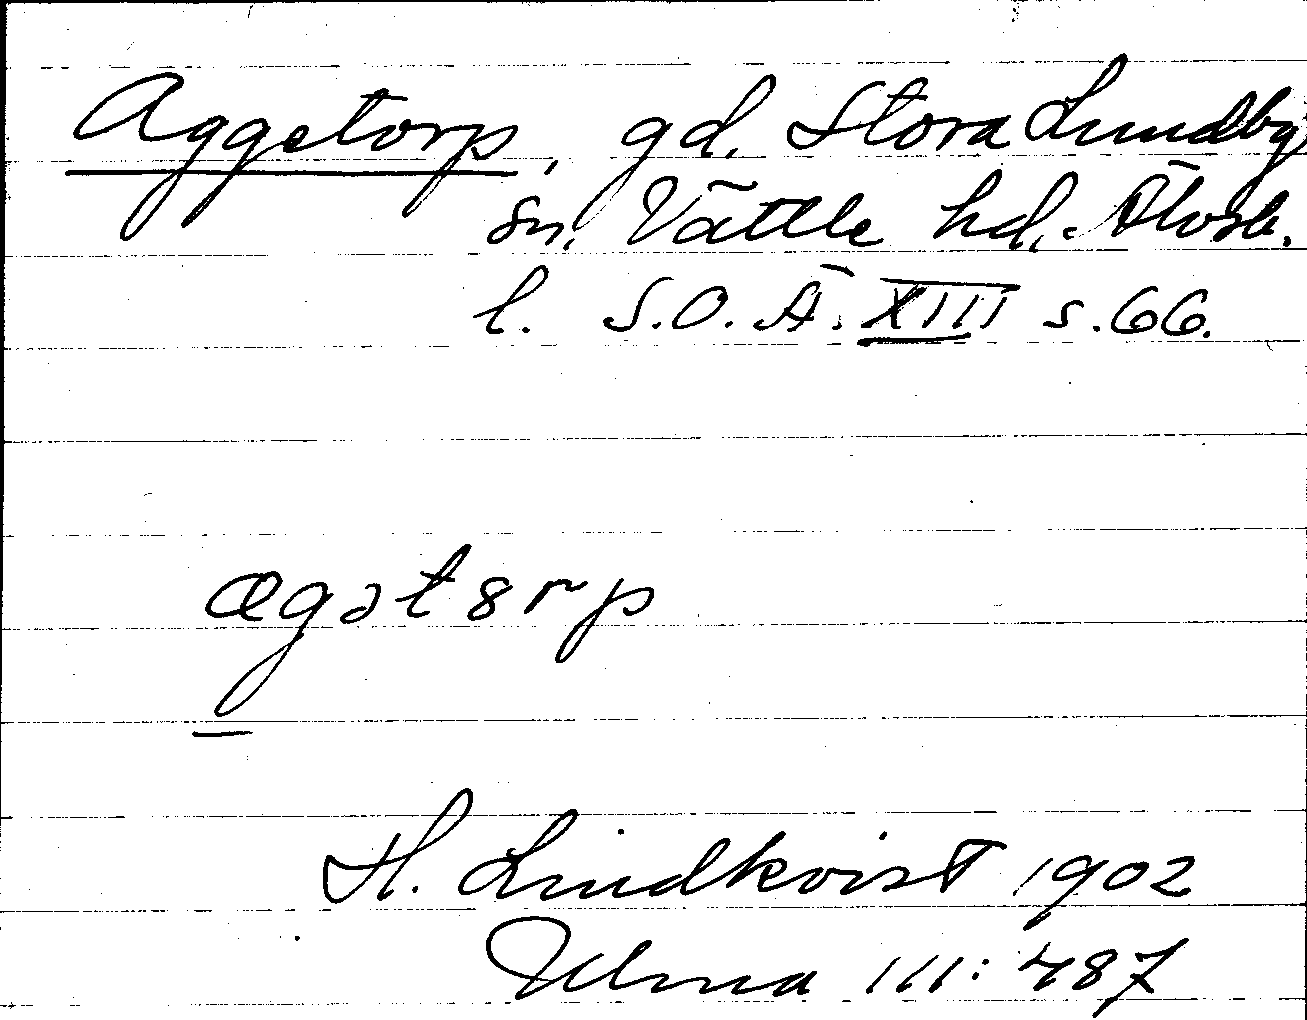 Aggetorp, gd, Stora Lundby
sn, Vättle hd, Älvsb.
l. S.O.Ä. XIII s. 66.
ægət8rp
H. Lindkvist 1902
Ulma 111: 487